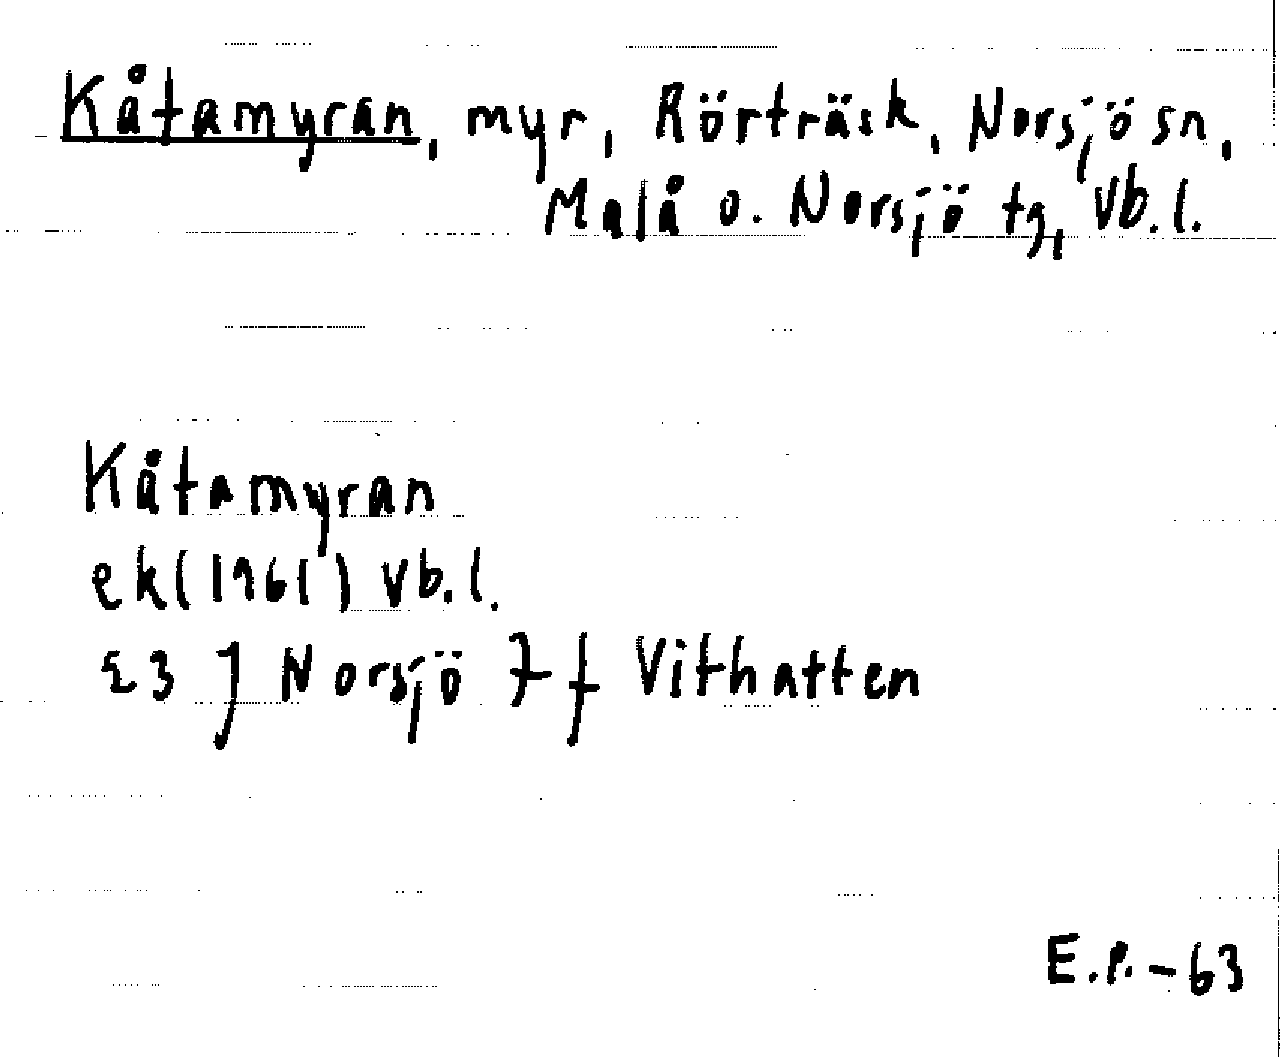 Kåtamyran, myr, Rörträsk, Norsjö sn,
Malå o. Norsjö tg, Vb.l.
Kåtamyran
ek(1961) Vb.l.
23 J Norsjö 7 f Vithatten
E.P.-63